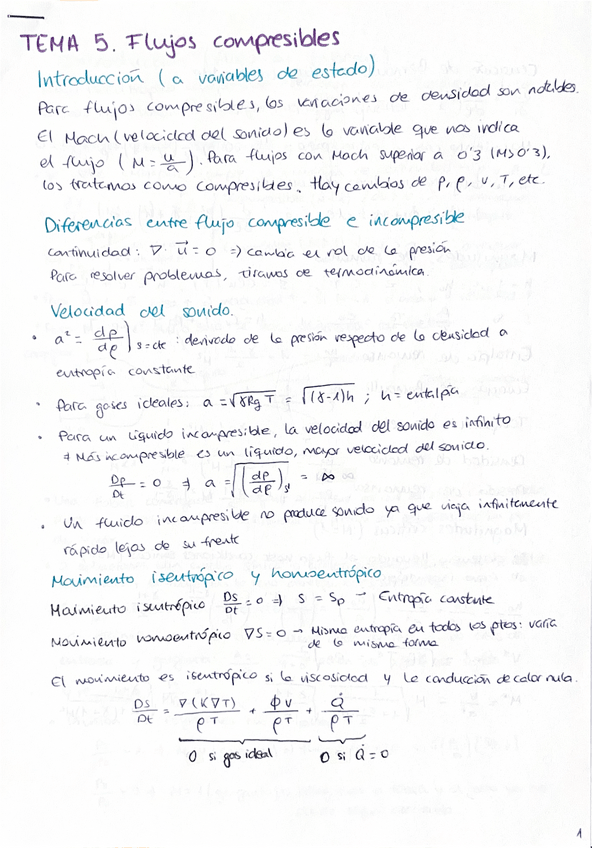 TEMA 5. Flujos compresibles
Introducción (a variables de estado)
Para flujos compresibles, las variaciones de densidad son notables.
El Mach (velocidad del sonido) es la variable que nos indica
el flujo (M = u/a). Para flujos con Mach superior a 0'3 (M>0'3),
los tratamos como compresibles. Hay cambios de p, ρ, v, T, etc.
Diferencias entre flujo compresible e incompresible
continuidad: ∇· u⃗ = 0 => cambia el rol de la presión
Para resolver problemas, tiramos de termodinámica.
Velocidad del sonido.
· a² = dp/dρ |s=cte : derivada de la presión respecto de la densidad a
entropía constante
· Para gases ideales: a = √(γRgT) = √((γ-1)h) ; h = entalpía
· Para un líquido incompresible, la velocidad del sonido es infinito
⇒ Más incompresible es un líquido, mayor velocidad del sonido.
Dρ/Dt = 0 ⇒ a = √((dp/dρ)s) = ∞
· Un fluido incompresible no produce sonido ya que viaja infinitamente
rápido lejos de su frente
Movimiento isentrópico y homoentrópico
Movimiento isentrópico Ds/Dt = 0 ⇒ S = Sp → Entropía constante
Movimiento homoentrópico ∇S = 0 → Misma entropía en todos los ptos: varía
de la misma forma
El movimiento es isentrópico si la viscosidad y la conducción de calor nula.
Ds/Dt = ∇(K∇T)/ρT + ϕv/ρT + Q̇/ρT
0 si gas ideal 0 si Q̇ = 0
1